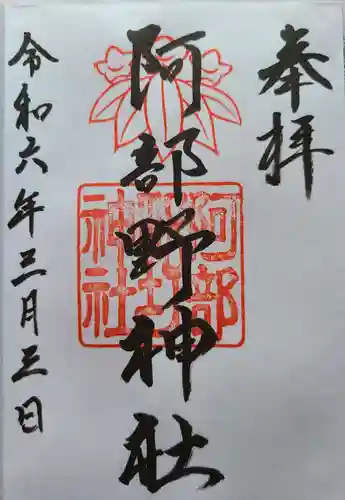 奉拝
阿部野神社
令和六年三月三日
阿部野神社